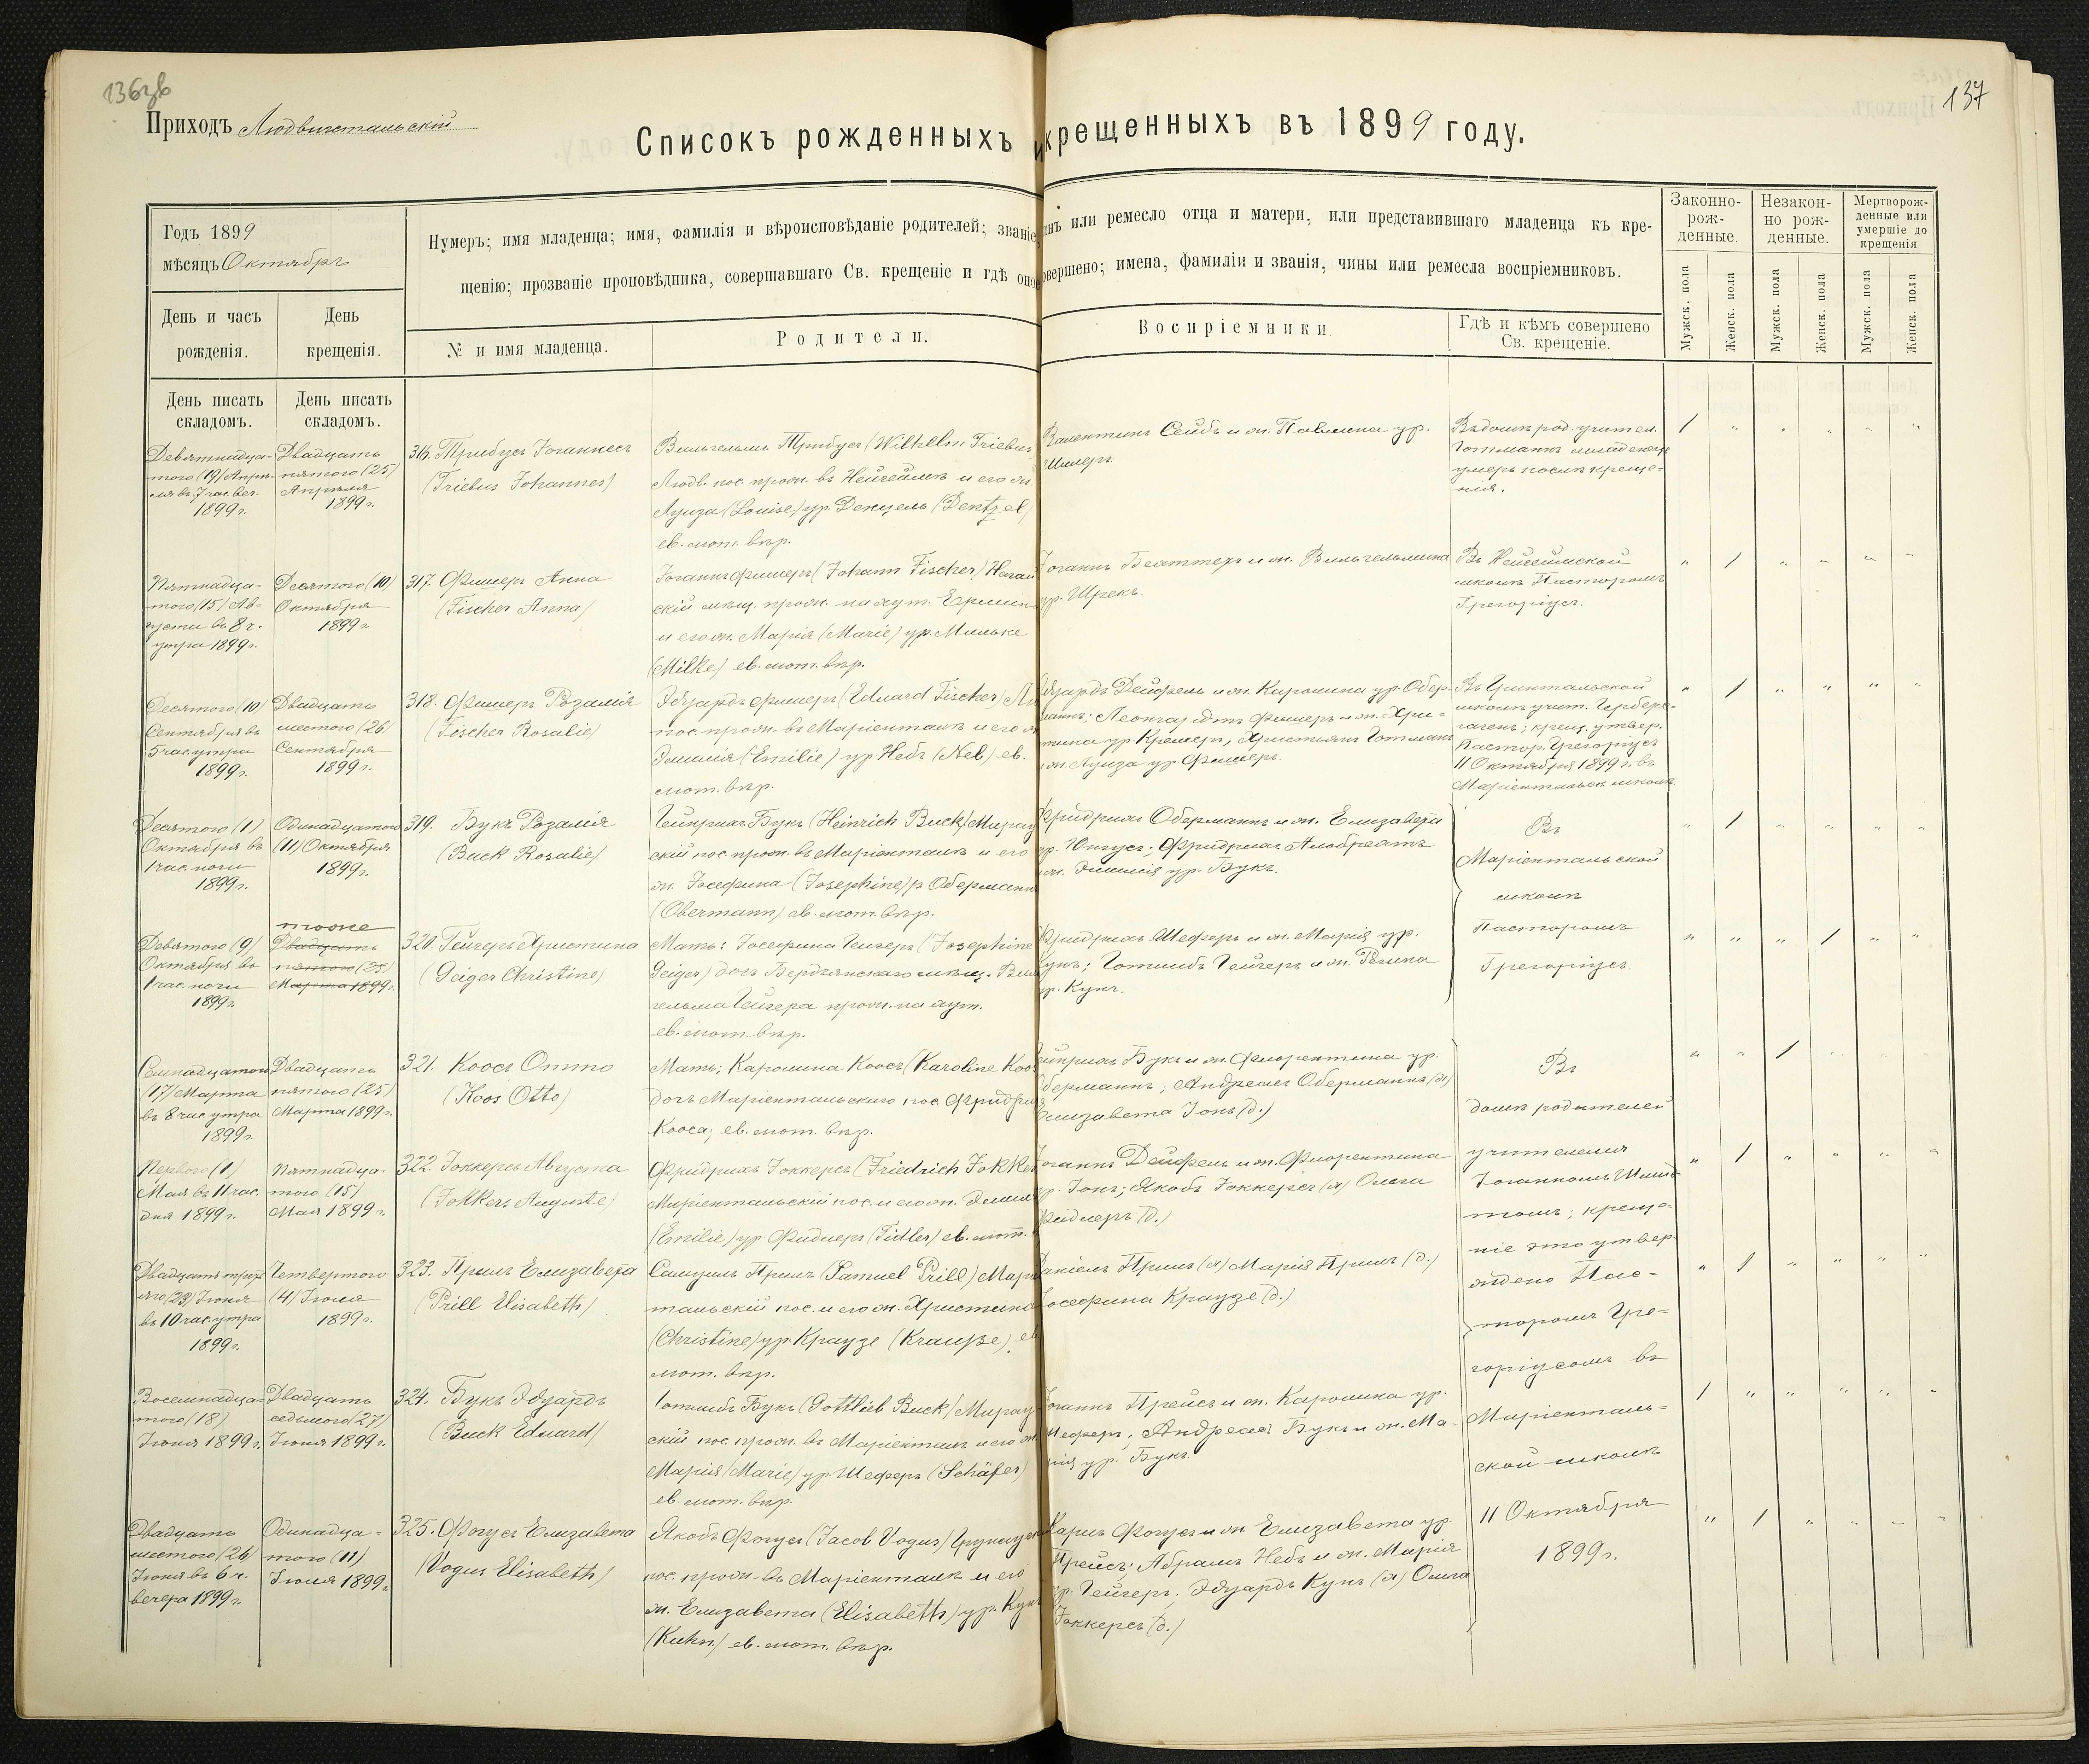 136зв
137
Приходъ Людвигстальскій
Списокъ рожденныхъ и крещенныхъ въ 1899 году.
Годъ 1899
мѣсяцъ Октябрь
Нумеръ; имя младенца; имя, фамилія и вѣроисповѣданіе родителей; званіе, чинъ или ремесло отца и матери, или представившаго младенца къ кре-
щенію; прозваніе проповѣдника, совершавшаго Св. крещеніе и гдѣ оное совершено; имена, фамиліи и званія, чины или ремесла воспріемниковъ.
Законно-
рож-
денные.
Незакон-
но рож-
денные.
Мертворож-
денные или
умершіе до
крещенія
День и часъ
рожденія.
День
крещенія.
№ и имя младенца.
Родители.
Воспріемники
Гдѣ и кѣмъ совершено
Св. крещеніе.
Мужск. пола
Женск. пола
Мужск. пола
Женск. пола
Мужск. пола
Женск. пола
День писать
складомъ.
День писать
складомъ.
Девятнадца-
того (19) Апрѣ-
ля въ 7 час. веч.
1899 г.
Двадцать
пятого (25)
Апрѣля
1899 г.
316. Трибусъ Іоаннесъ
(Triebus Johannes)
Вильгельмъ Трибусъ (Wilhelm Triebus)
Людв. пос. прож. въ Нейгеймѣ и его ж.
Луиза (Louise) ур. Денцель (Dentzel)
ев. лют. вѣр.
Валентинъ Сейбъ и ж. Павлина ур.
Шилеръ
Въ домѣ род. учител.
Готманъ младенецъ
умеръ послѣ креще-
нія.
1 " " " " "
Пятнадца-
того (15) Ав-
густа въ 8 ч.
утра 1899 г.
Десятого (10)
Октября
1899 г.
317. Фишеръ Анна
(Fischer Anna)
Іоганнъ Фишеръ (Johann Fischer)
скій мѣщ. прож. на хут.
и его ж. Марія (Marie) ур. Мильке
(Milke) ев. лют. вѣр.
Іоганнъ Беаттеръ и ж. Вильгельмина
ур. Шрекъ.
Въ Нейгеймской
школѣ Пасторомъ
Грегоріусъ.
" 1 " " " "
Десятого (10)
Сентября въ
5 час. утра
1899 г.
Двадцать
шестого (26)
Сентября
1899 г.
318. Фишеръ Розалія
(Fischer Rosalie)
Эдуардъ Фишеръ (Eduard Fischer)
пос. прож. въ Маріенталѣ и его ж.
Эмилія (Emilie) ур. Небъ (Neb) ев.
лют. вѣр.
Эдуардъ Дейфель и ж. Каролина ур. Обер-
манъ; Леонгардтъ Фишеръ и ж. Хри-
стина ур. Кремеръ, Христьянъ Готманъ
и ж. Луиза ур. Фишеръ.
Въ Гринтальской
школѣ учит. Герберс-
гагенъ; крещ. утвер.
Пастор. Грегоріусъ
11 Октября 1899 г. въ
Маріентальск. школѣ
" 1 " " " "
Десятого (1)
Октября въ
1 час. ночи
1899 г.
Одинадцатого
(11) Октября
1899 г.
319. Букъ Розалія
(Buck Rosalie)
Гейнрихъ Букъ (Heinrich Buck) Мирау
скій пос. прож. въ Маріенталѣ и его
ж. Іосефина (Josephine) р. Оберманнъ
(Obermann) ев. лют. вѣр.
Фридрихъ Оберманнъ и ж. Елизавета
ур. Юнгусъ; Фридрихъ Альбрехтъ
и ж. Эмилія ур. Букъ.
Въ
Маріентальской
школѣ
Пасторомъ
Грегоріусъ.
" 1 " " " "
Девятого (9)
Октября въ
1 час. ночи
1899 г.
тоже
Двадцать
пятого (25)
Марта 1899 г.
320. Гейгеръ Христина
(Geiger Christine)
Мать: Іосефина Гейгеръ (Josephine
Geiger) дочь Бердянскаго мѣщ. Виль
гельма Гейгера прож. на хут.
ев. лют. вѣр.
Фридрихъ Шеферъ и ж. Марія ур.
Кунъ; Готлибъ Гейгеръ и ж. Регина
ур. Кунъ.
" " " 1 " "
Семнадцатого
(17) Марта
въ 8 час. утра
1899 г.
Двадцать
пятого (25)
Марта 1899 г.
321. Коосъ Отто
(Koos Otto)
Мать: Каролина Коосъ (Karoline Koos
дочь Маріентальскаго пос. Фридриха
Кооса; ев. лют. вѣр.
Гейнрихъ Букъ и ж. Флорентина ур.
Оберманнъ; Андреасъ Оберманнъ (х)
Елизавета Іонъ (д.)
Въ
домѣ родителей
учителемъ
Іоганномъ Шмид-
томъ; креще-
ніе это утвер-
ждено Пас-
торомъ Гре-
горіусомъ въ
Маріенталь-
ской школѣ
11 Октября
1899 г.
" " 1 " " "
Перваго (1)
Мая въ 11 час.
дня 1899 г.
Пятнадца-
того (15)
Мая 1899 г.
322. Іоккерсъ Августа
(Jokkers Auguste)
Фридрихъ Іоккерсъ (Friedrich Jokkers
Маріентальскій пос. и его ж. Эмилія
(Emilie) ур. Фидлеръ (Fidler) ев. лют.
Іоганнъ Дейфель и ж. Флорентина
ур. Іонъ; Якобъ Іоккерсъ (х) Ольга
Фидлеръ (д.)
" 1 " " " "
Двадцать треть-
яго (23) Іюня
въ 10 час. утра
1899 г.
Четвертого
(4) Іюля
1899 г.
323. Приль Елизавета
(Prill Elisabeth)
Самуилъ Приль (Samuel Prill) Маріен
тальскій пос. и его ж. Христина
(Christine) ур. Краузе (Krauße) ев
лют. вѣр.
Даніелъ Приль (х) Марія Приль (д.)
Іосефина Краузе (д.)
" 1 " " " "
Восемнадца-
того (18)
Іюня 1899 г.
Двадцать
седьмого (27)
Іюня 1899 г.
324. Букъ Эдуардъ
(Buck Eduard)
Готлибъ Букъ (Gottlieb Buck) Мирау
скій пос. прож. въ Маріенталѣ и его ж.
Марія (Marie) ур. Шеферъ (Schäfer)
ев. лют. вѣр.
Іоганнъ Прейсъ и ж. Каролина ур.
Шеферъ; Андреасъ Букъ и ж. Ма-
рія ур. Букъ.
1 " " " " "
Двадцать
шестого (26)
Іюня въ 6 ч.
вечера 1899 г.
Одинадца-
того (11)
Іюля 1899 г.
325. Фогусъ Елизавета
(Vogus Elisabeth)
Якобъ Фогусъ (Jacob Vogus)
пос. прож. въ Маріенталѣ и его
ж. Елизавета (Elisabeth) ур. Кунъ
(Kuhn) ев. лют. вѣр.
Карлъ Фогусъ и ж. Елизавета ур.
Прейсъ; Абрамъ Небъ и ж. Марія
ур. Гейгеръ; Эдуардъ Кунъ (х) Ольга
Іоккерсъ (д.)
" 1 " " " "